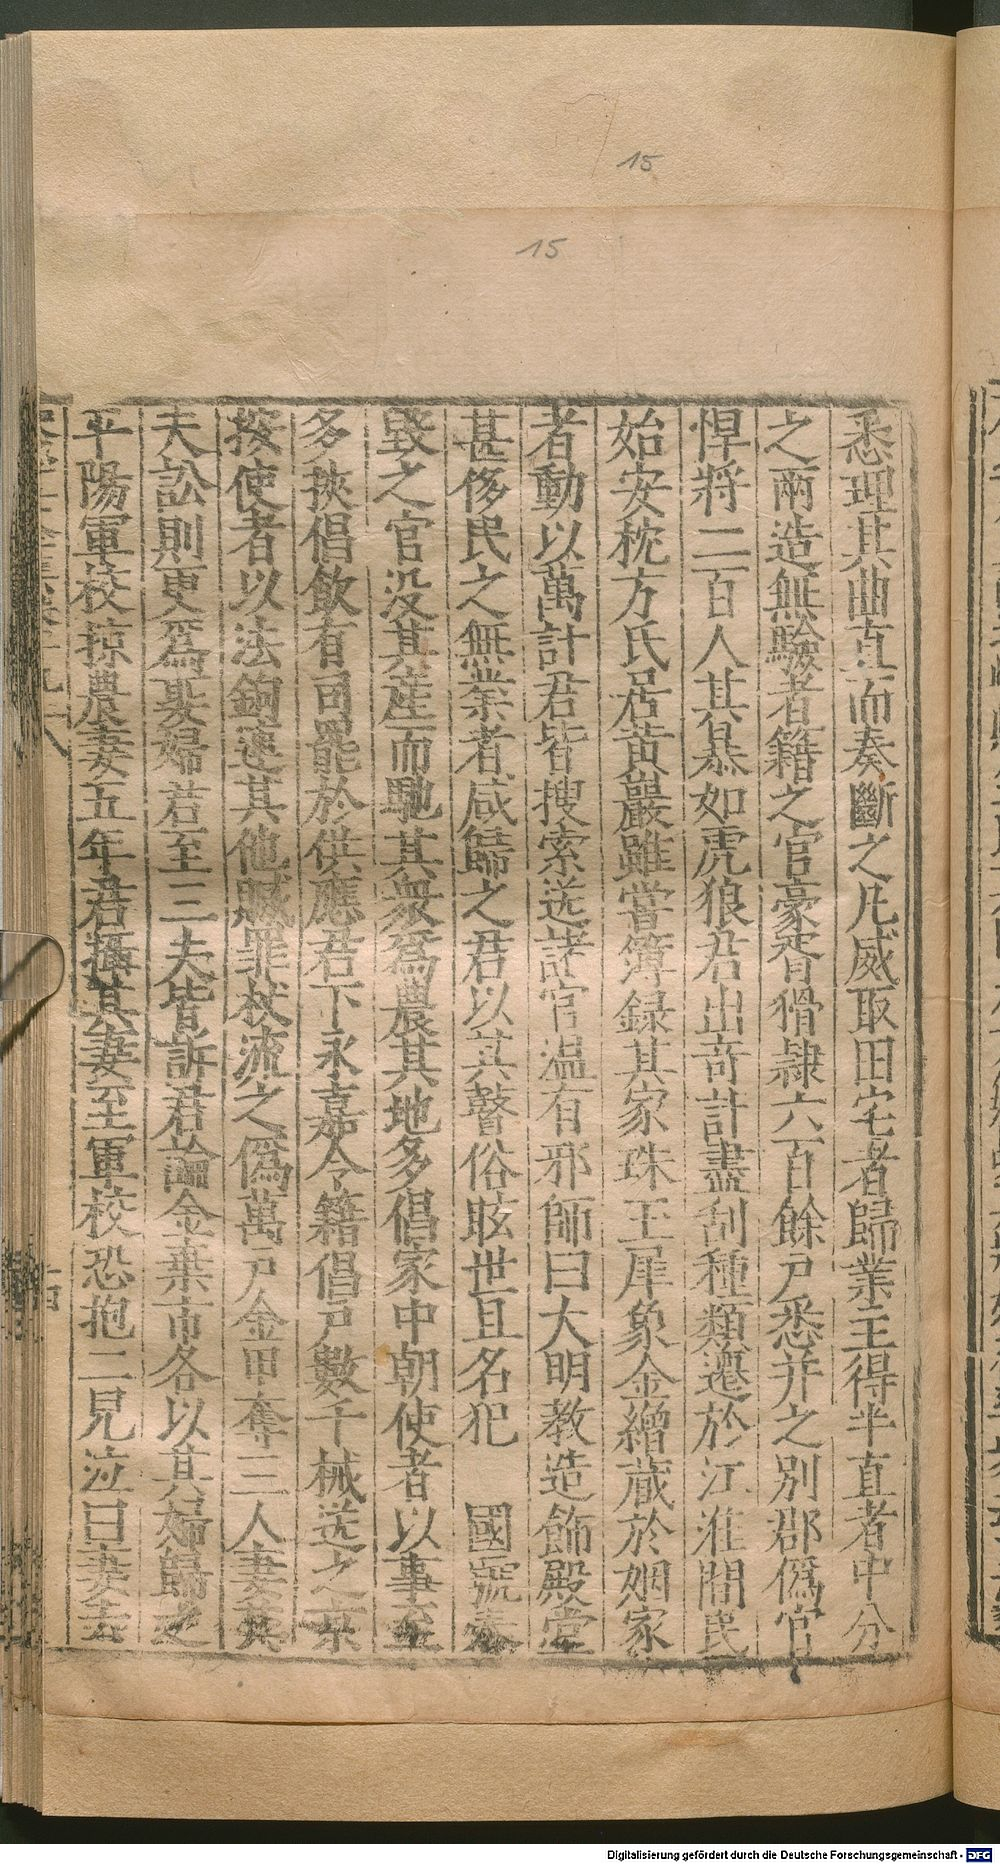 15
15
悉理其曲直而奏斷之凡威取田宅者歸業主得半直者中分
之兩造無驗者籍之官豪胥猾隸六百餘尸悉并之別郡僞官
悍將二百人其暴如虎狼君出奇計盡刮種類遷於江淮間民
始安枕方氏居黄巖雖嘗簿録其家珠玉犀象金繒蔵於姻家
者動以萬計君皆搜索送諸官温有邪師曰大明教造飾殿堂
甚侈民之無業者咸歸之君以其瞽俗眩世且名犯 國號奏
毀之官没其產而馳其衆爲農其地多倡家中朝使者以事至
多挾倡飲有司罷於供應君下永嘉令籍倡戸數千械送之京
按使者以法鉤逮其他贓罪杖流之僞萬戸金甲奪三人妻其
夫訟則更爲娶婦若至三夫皆訴君論金棄市各以其婦歸之
平陽軍校掠農妻五年君攝其妻至軍校恐抱二兒泣曰妻去
十四
Digitalisierung gefördert durch die Deutsche Forschungsgemeinschaft - DFG